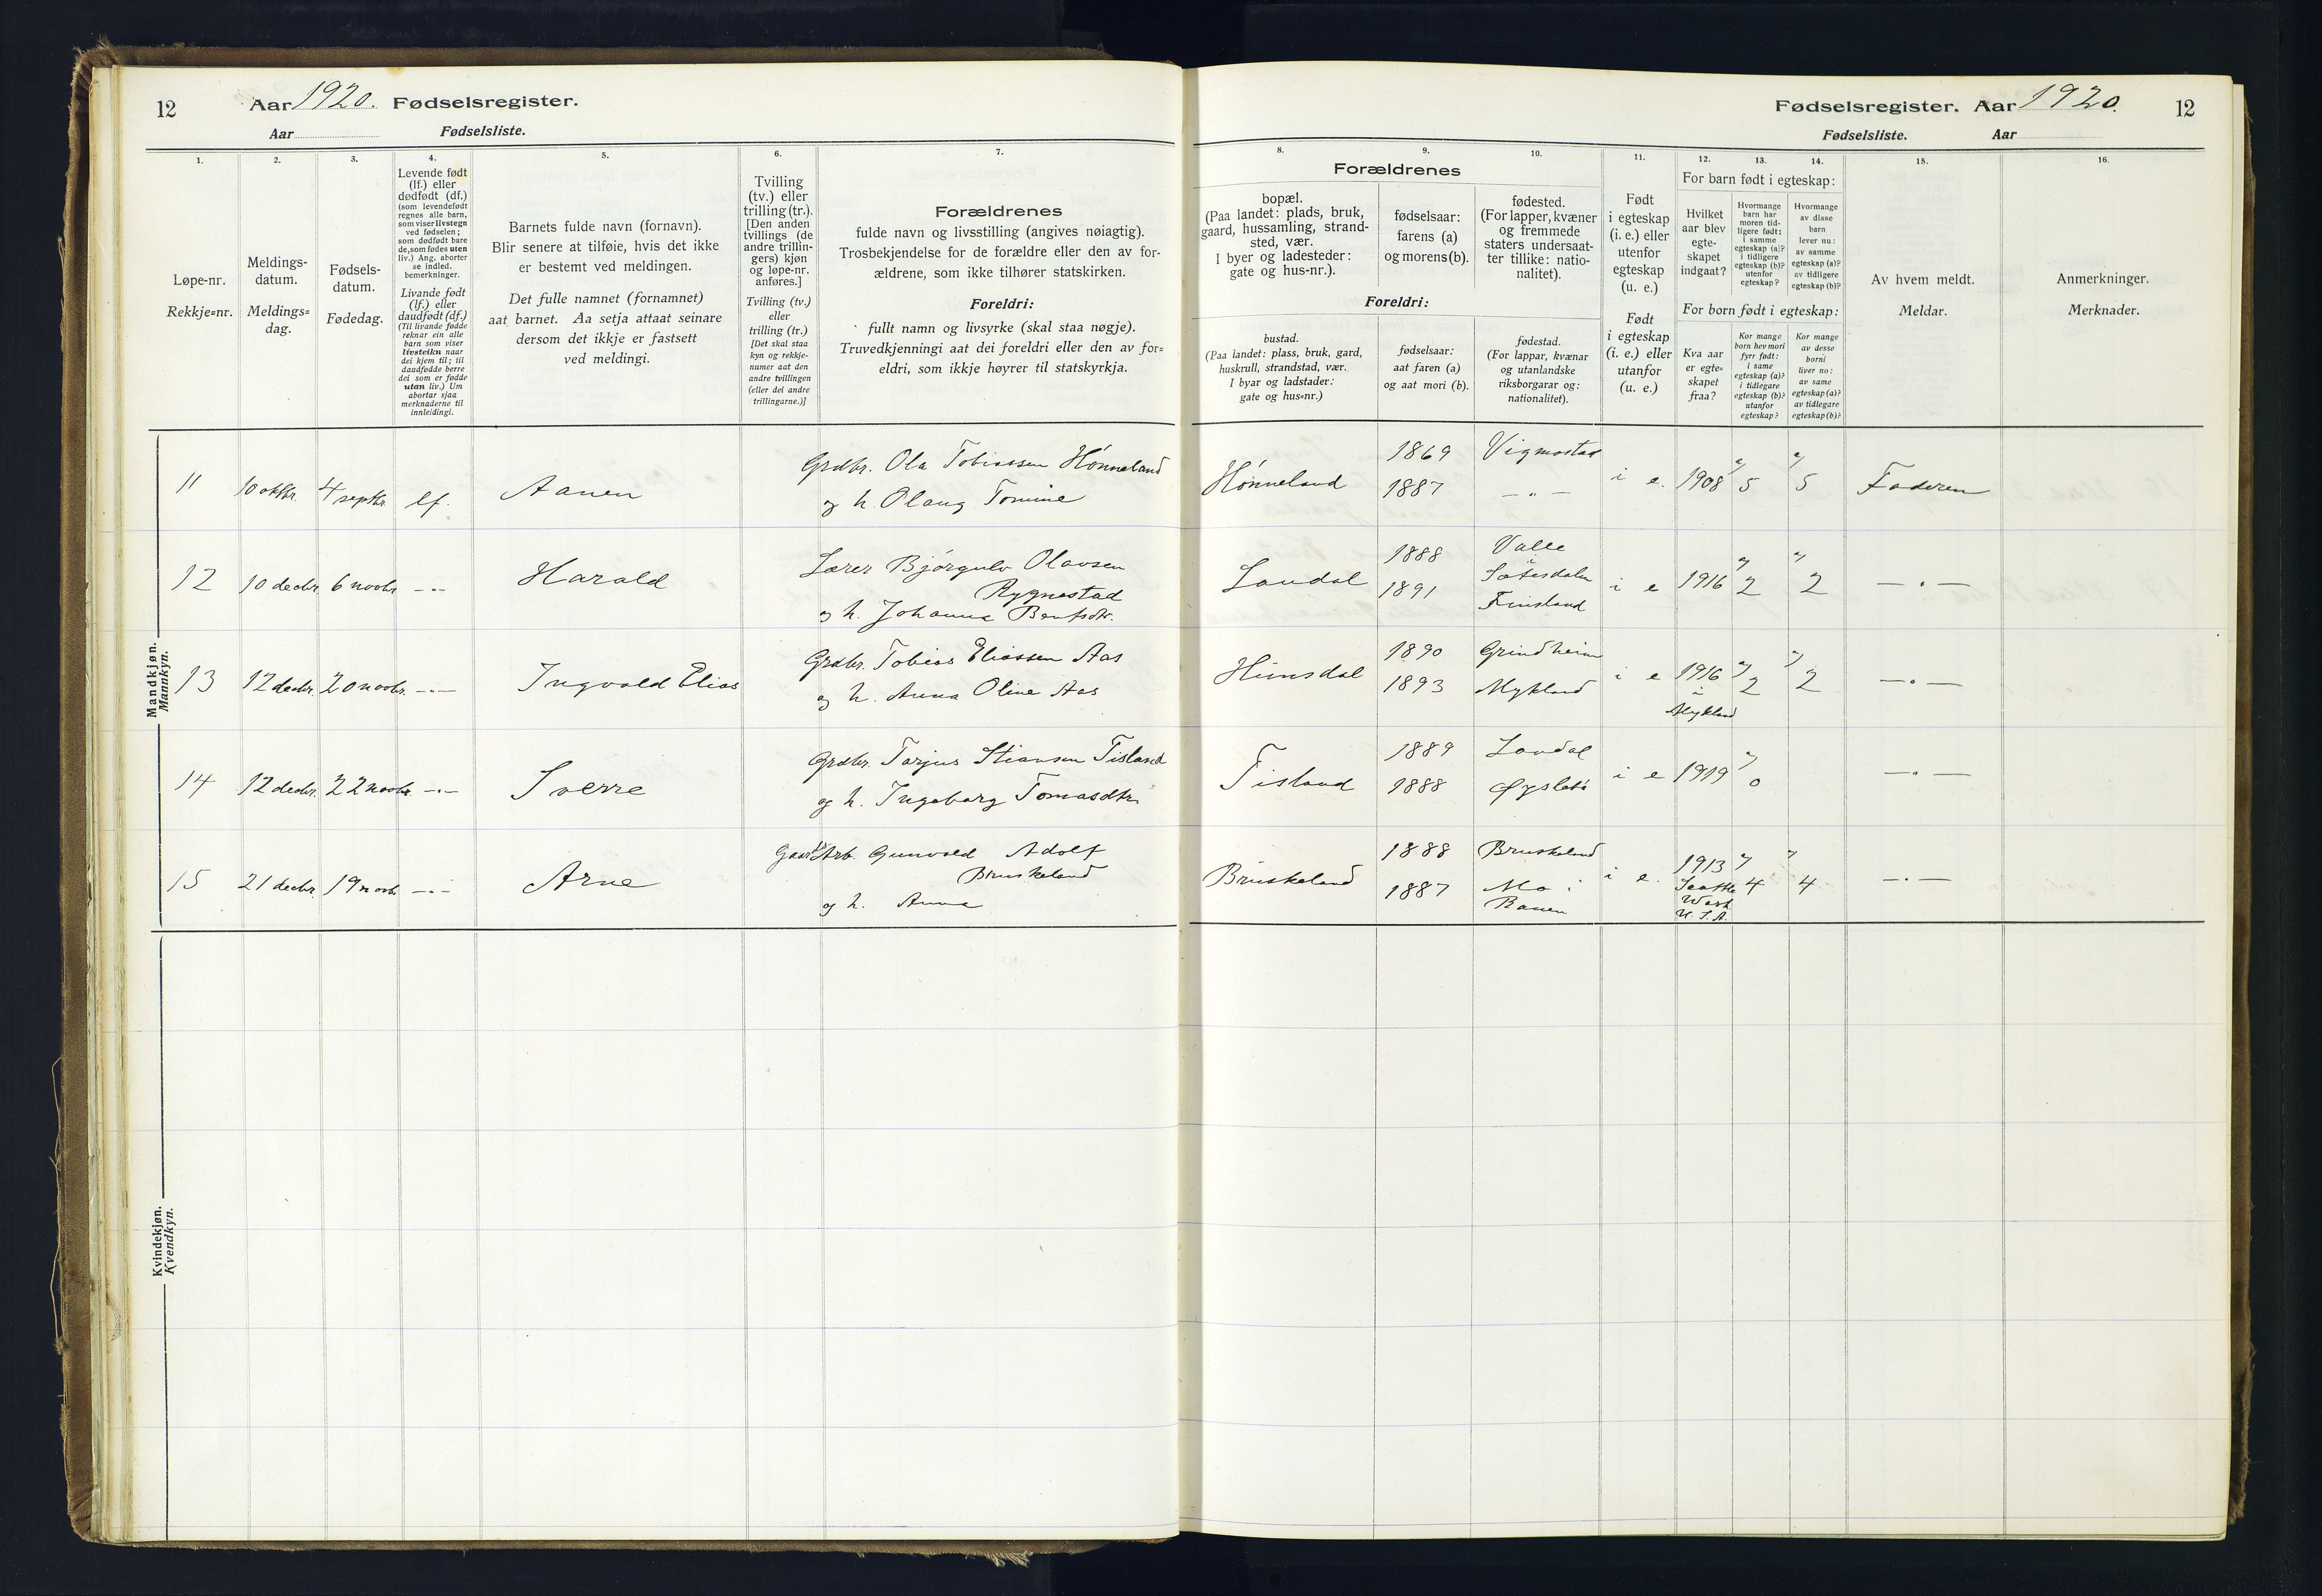 12 Aar 1920. Fødselsregister.
Aar Fødselsliste.
1.
Løpe-nr.
Rekkje=nr.
2.
Meldings-
datum.
Meldings=
dag.
3.
Fødsels-
datum.
Fødedag.
4.
Levende født
(lf.) eller
dødfødt (df.)
(som levendefødt
regnes alle barn,
som viser livstegn
ved fødselen;
som dødfødt bare
de, som fødes uten
liv.) Ang. aborter
se indled.
bemerkninger.
Livande født
(lf.) eller
daudfødt (df.)
(Til livande fødde
reknar ein alle
barn som viser
livsteikn naar
dei kjem til; til
daudfødde berre
dei som er fødde
utan liv.) Um
abortar sjaa
merknaderne til
innleidingi.
5.
Barnets fulde navn (fornavn).
Blir senere at tilføie, hvis det ikke
er bestemt ved meldingen.
Det fulle namnet (fornamnet)
aat barnet. Aa setja attaat seinare
dersom det ikkje er fastsett
ved meldingi.
6.
Tvilling
(tv.) eller
trilling (tr.).
[Den anden
tvillings (de
andre trillin-
gers) kjøn
og løpe-nr.
anføres.]
Tvilling (tv.)
eller
trilling (tr.)
[Det skal staa
kyn og rekkje-
numer aat den
andre tvillingen
(eller dei andre
trillingarne.)]
7.
Forældrenes
fulde navn og livsstilling (angives nøiagtig).
Trosbekjendelse for de forældre eller den av for-
ældrene, som ikke tilhører statskirken.
Foreldri:
fullt namn og livsyrke (skal staa nøgje).
Truvedkjenningi aat dei foreldri eller den av for=
eldri, som ikkje høyrer til statskyrkja.
Mandkjøn.
Mannkyn.
11 10 oktbr. 4 septbr. lf. Aanen
Grdbr. Ola Tobiassen Hønneland
og h. Olaug Tomine
12 10 decbr. 6 novbr. —„— Harald
Lærer Bjørgulv Olavsen
Rygnestad
og h. Johanna Bentsdtr.
13 12 decbr. 20 novbr. —„— Ingvald Elias
Grdbr. Tobias Eliassen Aas
og h. Anna Oline Aas
14 12 decbr. 22 novbr. —„— Sverre
Grdbr. Tarjus Stiansen Tisland
og h. Ingeborg Tomasdtr.
15 21 decbr. 19 novbr. —„— Arne
Gaardarb. Gunvald Adolf
Bruskeland
og h. Anna
Kvindekjøn.
Kvendkyn.
Fødselsregister. Aar 1920. 12
Fødselsliste. Aar
Forældrenes
8.
bopæl.
(Paa landet: plads, bruk,
gaard, hussamling, strand-
sted, vær.
I byer og ladesteder:
gate og hus-nr.).
9.
fødselsaar:
farens (a)
og morens (b).
10.
fødested.
(For lapper, kvæner
og fremmede
staters undersaat-
ter tillike: natio-
nalitet).
Foreldri:
bustad.
(Paa landet: plass, bruk, gard,
huskrull, strandstad, vær.
I byar og ladstader:
gate og hus=nr.)
fødselsaar:
aat faren (a)
og aat mori (b).
fødestad.
(For lappar, kvænar
og utanlandske
riksborgarar og:
nationalitet).
11.
Født
i egteskap
(i. e.) eller
utenfor
egteskap
(u. e.)
Født
i egteskap
(i. e.) eller
utanfor
(u. e.)
12. 13. 14.
For barn født i egteskap:
Hvilket
aar blev
egte-
skapet
indgaat?
Hvormange
barn har
moren tid-
ligere født:
i samme
egteskap (a)?
i tidligere
egteskap (b)?
utenfor
egteskap?
Hvormange
av disse
barn
lever nu:
av samme
egteskap (a)?
av tidligere
egteskap (b)?
For born født i egteskap:
Kva aar
er egte=
skapet
fraa?
Kor mange
born hev mori
fyrr født:
i same
egteskap (a)?
i tidlegare
egteskap (b)?
utanfor
egteskap?
Kor mange
av desse
borni
liver no:
av same
egteskap (a)?
av tidlegare
egteskap (b)?
15.
Av hvem meldt.
Meldar.
16.
Anmerkninger.
Merknader.
Hønneland 1869 Vigmostad i e. 1908 a/ 5 a/ 5 Faderen
1887 —„—
Laudal 1888 Valle
Sætesdalen i e 1916 a/ 2 a/ 2 —„—
1891 Finsland
Himsdal 1890 Grindheim i e 1916 a/ 2 a/ 2 —„—
1893 Mykland i
Mykland
Tisland 1889 Laudal i e 1919 a/ 0 —„—
1888 Øyslebø
Bruskeland 1888 Bruskeland i e. 1913 a/ 4 a/ 4 —„—
1887 Mo i Seattle
Ranen Wash.
U. S. A.